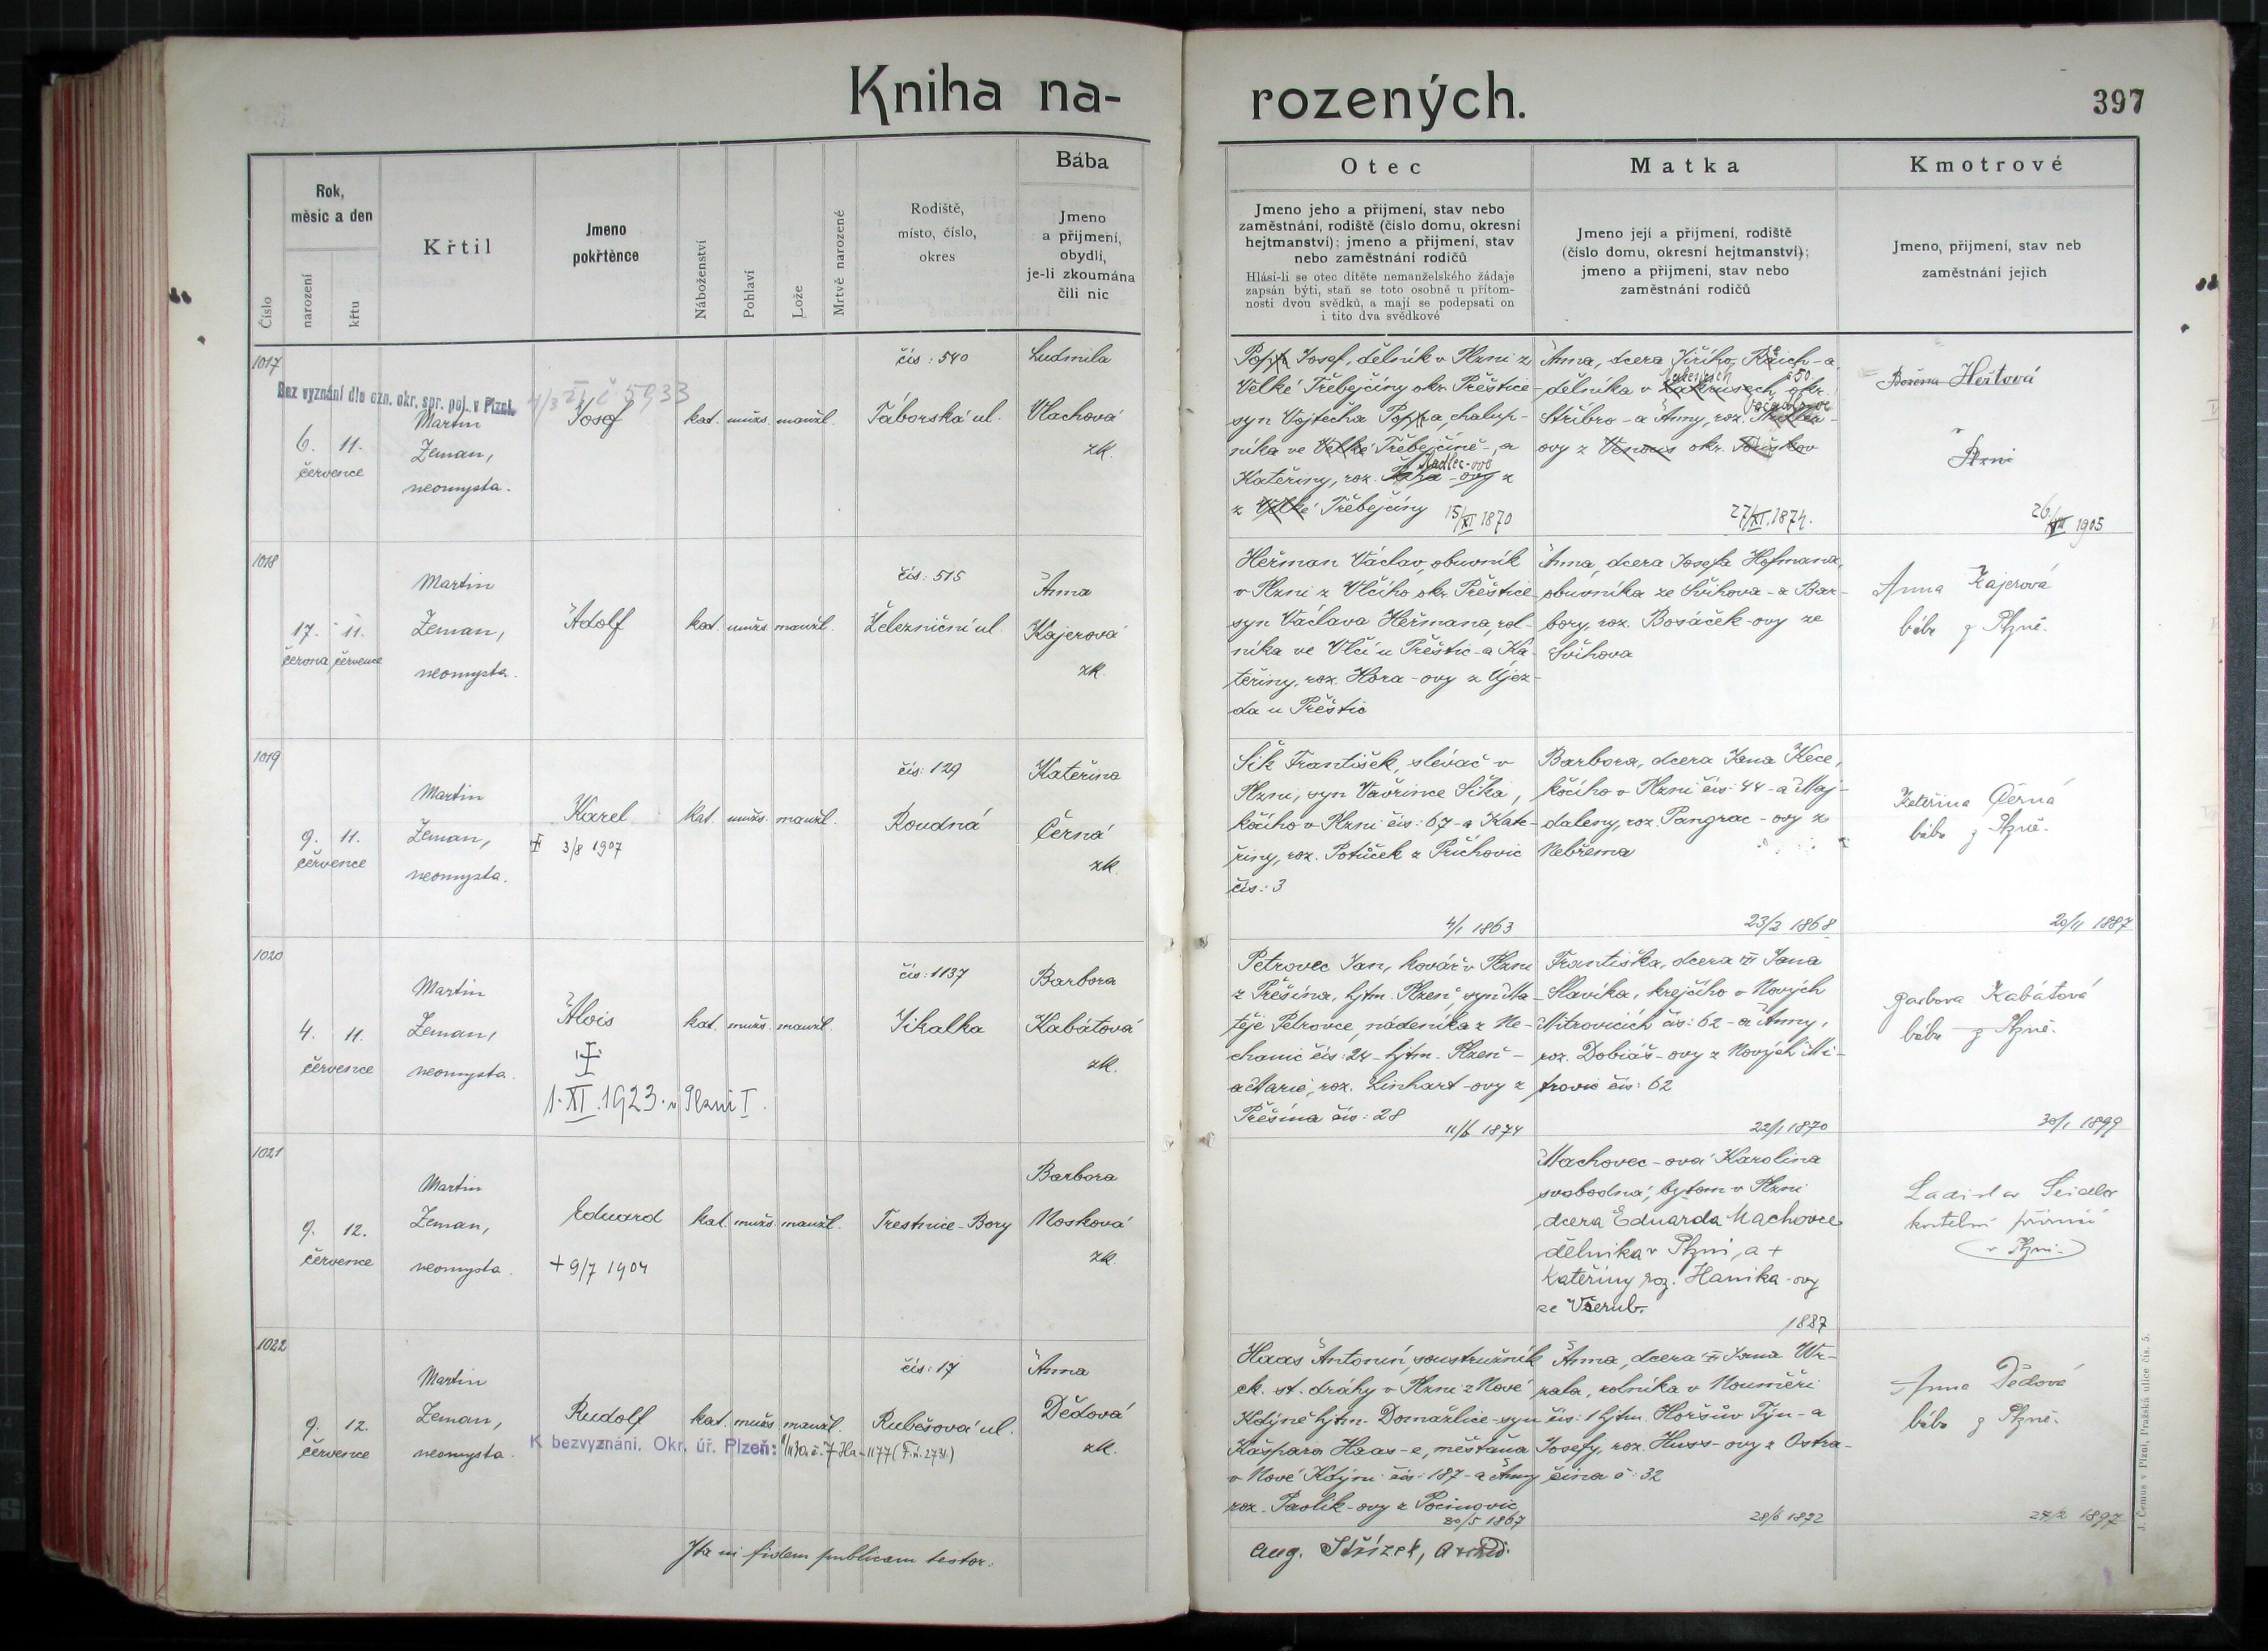 Kniha na-
rozených.
397
Číslo
Rok,
měsíc a den
narození
křtu
Křtil
Jmeno
pokřtěnce
Náboženství
Pohlaví
Lože
Mrtvě narozené
Rodiště,
místo, číslo,
okres
Bába
Jmeno
a přijmení,
obydlí,
je-li zkoumána
čili nic
Otec
Jmeno jeho a přijmení, stav nebo
zaměstnání, rodiště (číslo domu, okresní
hejtmanství); jmeno a přijmení, stav
nebo zaměstnání rodičů
Hlásí-li se otec dítěte nemanželského žádaje
zapsán býti, staň se toto osobně u přítom-
nosti dvou svědků, a mají se podepsati on
i tito dva svědkové
Matka
Jmeno její a přijmení, rodiště
(číslo domu, okresní hejtmanství);
jmeno a přijmení, stav nebo
zaměstnání rodičů
Kmotrové
Jmeno, přijmení, stav neb
zaměstnání jejich
1017
Bez vyznání dle ozn. okr. spr. pol. v Plzni
4/3 XI č 5933
6. 11.
července
Martin
Zeman,
neomysta.
Josef
kat. mužs. manžl.
čís: 540
Táborská ul.
Ludmila
Vlachová
zk.
Josef, dělník v Plzni z
Velké Třebejčiny okr. Přeštice-
syn Vojtěcha chalup-
níka ve Velké Třebejčině-, a
Kateřiny, roz. Kadlec-ové
z Velké Třebejčiny
15/XI 1870
Anna, dcera Jiřího, Raich-a
dělníka v okr.
č 50
Stříbro-a Anny, roz.
ovy z okr.
27/XI.1874.
Božena Heřtová
26/VII 1905
1018
17. 11.
června července
Martin
Zeman,
neomysta.
Adolf
kat. mužs. manžl.
čís: 515
Železniční ul.
Anna
Kajerová
zk.
Heřman Václav, obuvník
v Plzni z Vlčího okr. Přeštice-
syn Václava Heřmana, rol-
níka ve Vlčí u Přeštic-a Ka-
teřiny, roz. Hora-ovy z Újez-
da u Přeštic
Anna, dcera Josefa Hofmana,
obuvníka ze Švihova-a Bar-
bory, roz. Bosáček-ovy ze
Švihova
Anna Kajerová
bába z Plzně.
1019
9. 11.
července
Martin
Zeman,
neomysta.
Karel
3/8 1907
kat. mužs. manžl.
čís: 129
Roudná
Kateřina
Černá
zk.
Šik František, slévač v
Plzni, syn Vavřince Šika,
kočího v Plzni čís: 67-a Kate-
řiny, roz. Potůček z Příchovic
čís: 3
4/1 1863
Barbora, dcera Jana Kece,
kočího v Plzni čís: 44-a Maj-
daleny, roz. Pangrac-ovy z
Nebřema
23/2 1868
Kateřina Černá
bába z Plzně.
20/11 1887
1020
4. 11.
července
Martin
Zeman,
neomysta.
Alois
1.XI.1923.v Plzni I.
kat. mužs. manžl.
čís: 1137
Jikalka
Barbora
Kabátová
zk.
Petrovec Jan, kovář v Plzni
z Přešína, hjtm. Plzeň, syn Ma-
těje Petrovce, nádeníka z Ne-
chanic čís: 24-hjtm. Plzeň-
a Marie, roz. Linhart-ovy z
Přešína čís: 28
11/6 1874
Františka, dcera Jana
Slavíka, krejčího v Nových
Mitrovicích čís: 62-a Anny,
roz. Dobiáš-ovy z Nových Mi-
trovic čís: 62
22/1 1870
Barbora Kabátová
bába z Plzně.
30/1 1899
1021
9. 12.
července
Martin
Zeman,
neomysta.
Eduard
+ 9/7 1904
kat. mužs. manžl.
Trestnice-Bory
Barbora
Nosková
zk.
Machovec-ová Karolina
svobodná, bytem v Plzni
dcera Eduarda Machovce
dělníka v Plzni, a +
Kateřiny roz. Hanika-ovy
ze Všerub.
1887
Ladislav Seidler
kostelní
v Plzni.
1022
9. 12.
července
Martin
Zeman,
neomysta.
Rudolf
kat. mužs. manžl.
K bezvyznání. Okr. úř. Plzeň:
čís: 17
Rubešova ul.
Anna
Dědová
zk.
Haas Antonín, soustružník
ck. st. dráhy v Plzni z Nové
Kdýně hjtm. Domažlice-syn
Kašpara Haas-e, měšťana
v Nové Kdýni čís: 187-a Anny
roz. Pavlík-ovy z Pocinovic
30/5 1867
Anna, dcera Jana Vz-
rala, rolníka v Nouměři
čís: 1 hjtm. Horšův Týn-a
Josefy, roz. Huss-ovy z Ostra-
čína č: 32
28/6 1872
Anna Dědová
bába z Plzně.
24/2 1897
Ita in fidem publicam testor:
Aug. Střízek, Archid.
J. Čemus v Plzni, Pražská ulice čís. 5.